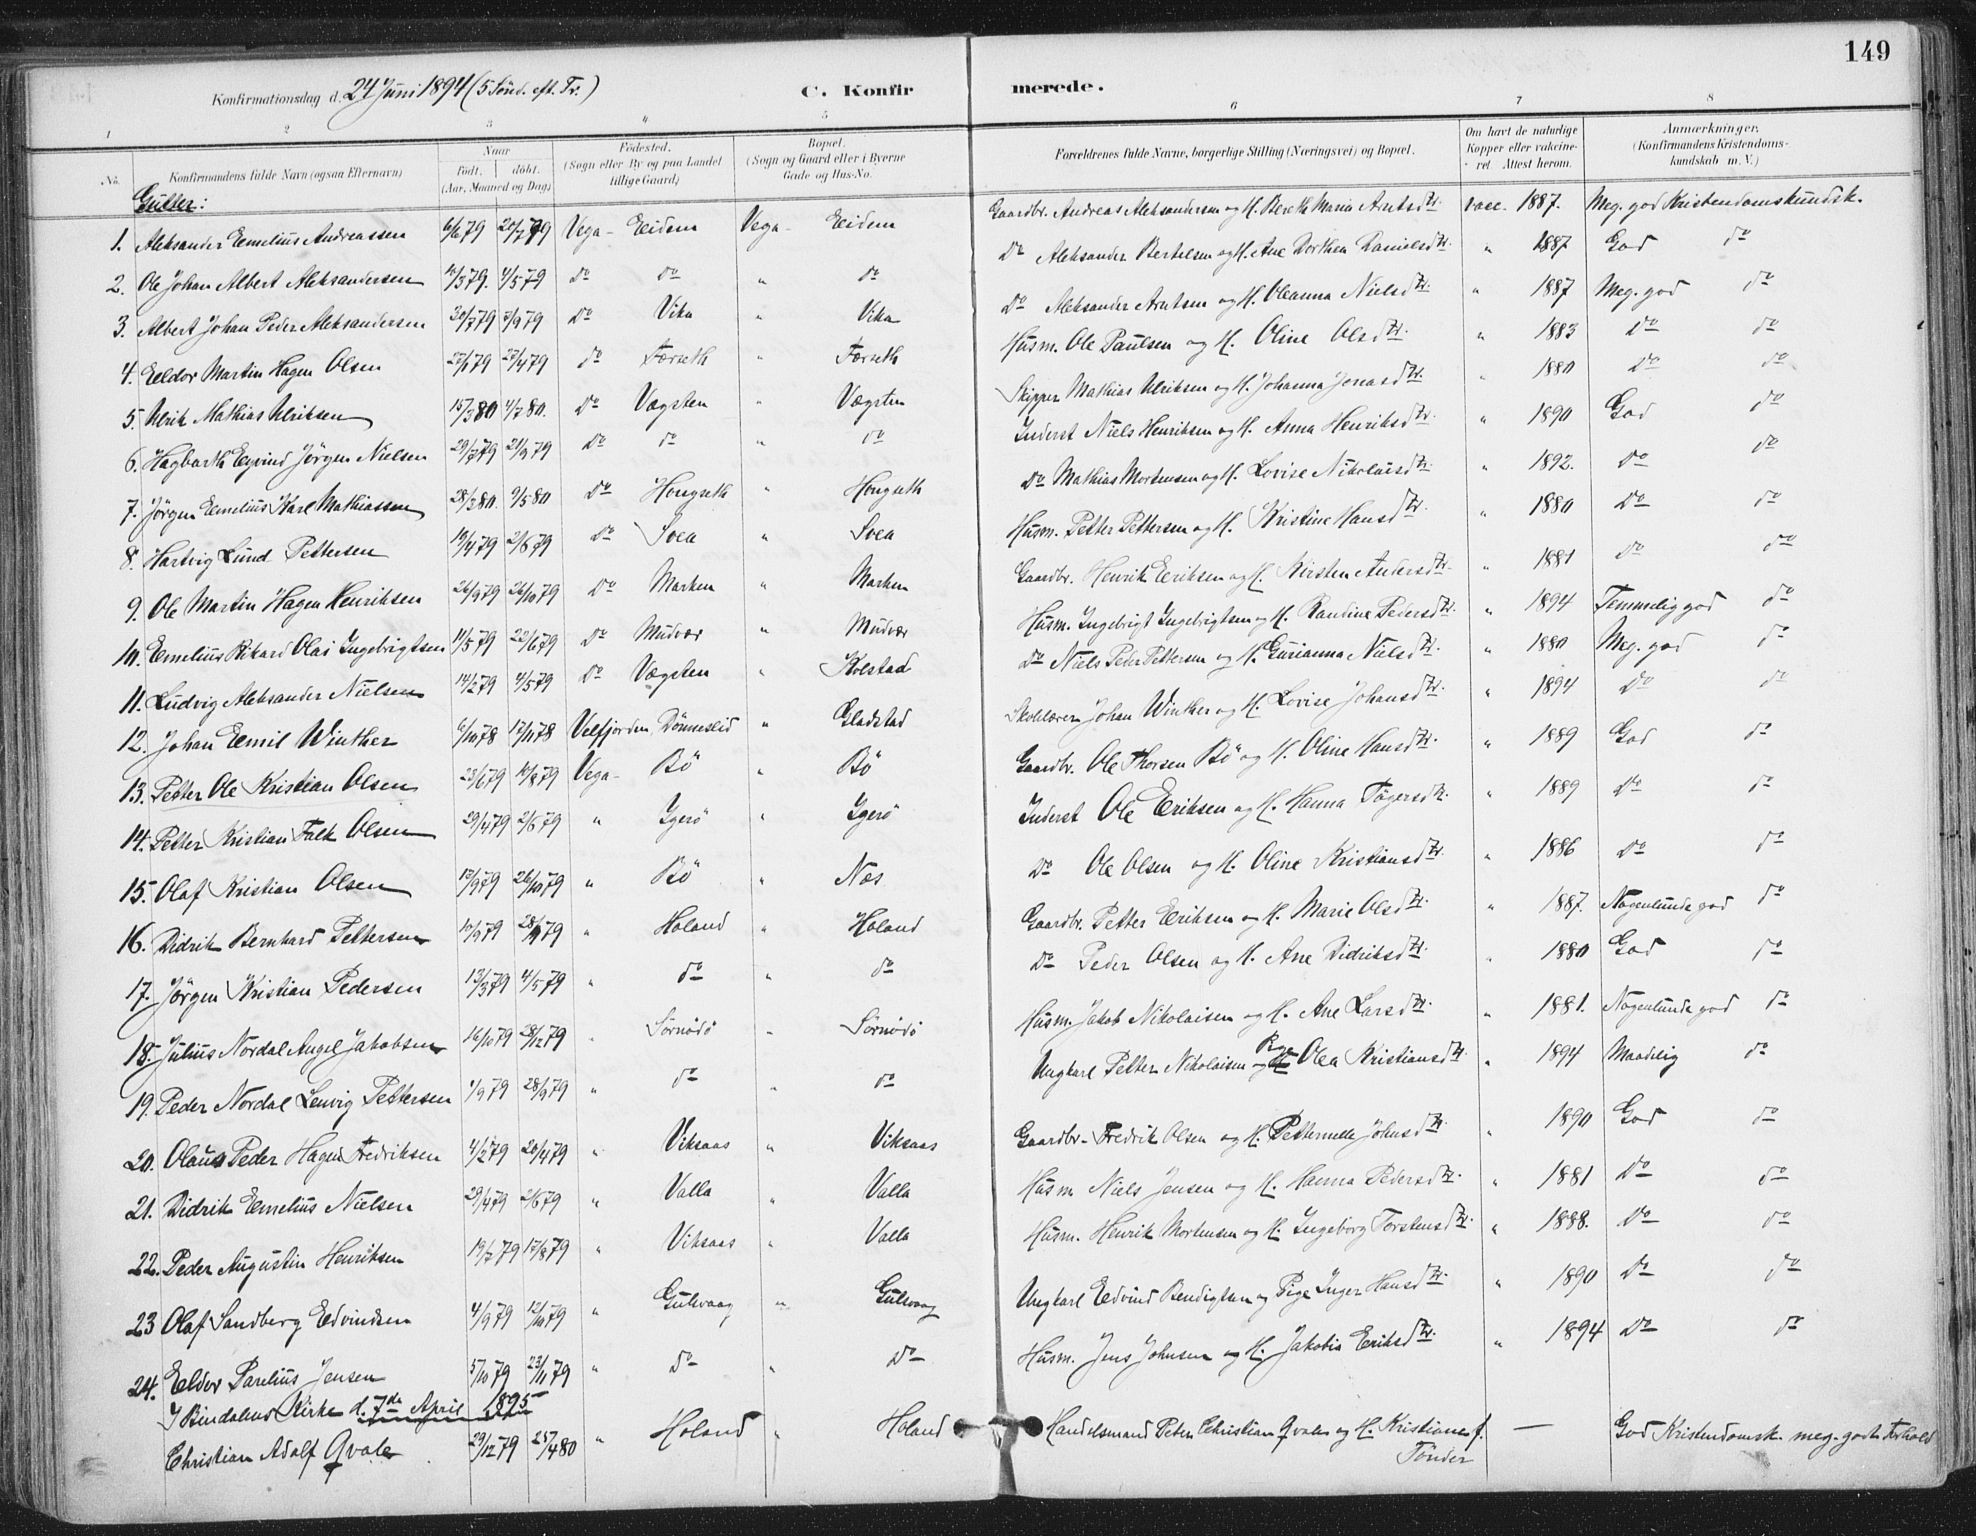 149
Konfirmationsdag d. 24 Juni 1894 (5 Sönd. eft. Tr.)
C. Konfirmerede.
1 2 3 4 5 6 7 8
No. Konfirmandens fulde Navn (ogsaa Efternavn) Naar født. døbt. (Aar, Maaned og Dag) Födested. (Sogn eller By og paa Landet tillige Gaard) Bopæl. (Sogn og Gaard eller i Byerne Gade og Hus-No. Forældrenes fulde Navne, borgerlige Stilling (Næringsvei) og Bopæl. Om havt de naturlige Kopper eller vakcineret. Attest herom. Anmærkninger. (Konfirmandens Kristendomskundskab m. V.)
Gutter:
1. Aleksander Emelius Andreassen 6/6 79 20/7 79 Vega - Eidem Vega - Eidem Gaardbr. Andreas Aleksandersen og H. Bereth Maria Arntsdtr. vacc. 1887. Meg. god Kristendomskundsk.
2. Ole Johan Albert Aleksandersen 10/3 79. 4/5 79 do do " do Do Aleksander Bertelsen og H. Ane Dorthea Danielsdtr. " 1887 God do
3. Albert Johan Peder Aleksandersen 20/7 79 3/9 79 Do Vika " Vika Do Aleksander Arntsen og H. Oleanna Nielsdtr. " 1887 Meg. god do
4. Eeldor Martin Hagen Olsen 27/1 79 27/4 79 do Færseth " Færseth Husm. Ole Paulsen og H. Oline Olsdtr. " 1883 Do do
5. Ulrik Mathias Ulriksen 15/3 80 4/7 80. Do Vægsten " Vægsten Skipper Mathias Ulriksen og H. Johanna Jonasdtr. " 1880 Do do
6. Hagbarth Eyvind Jörgen Nielsen 29/7 79 21/9 79 Do do " do Inderst Niels Henriksen og H. Anna Henriksdtr. " 1890 God do
7. Jörgen Emelius Karl Mathiassen 28/2 80. 9/5 80 Do Hongseth " Hongseth Do Mathias Mortensen og H. Lovise Nikolaisdtr. " 1892. Do do
8. Hartvig Lund Pettersen 19/4 79 2/6 79 Do Svea " Svea Husm. Petter Pettersen og H. Kristine Hansdtr. " 1880 Do do
9. Ole Martin Hagen Henriksen 26/9 79 26/10 79 Do Marken " Marken Gaardbr. Henrik Eriksen og H. Kirsten Andersdtr. " 1881 Do do
10. Emelius Rikard Olai Ingebrigtsen 11/5 79 22/6 79 Do Mudvær " Mudvær Husm. Ingebrigt Ingebrigtsen og H. Randine Pedersdtr. " 1894 Temmelig god do
11. Ludvig Aleksander Nielsen 14/2 79 4/5 79 Do Vægsten " Kolstad Do Niels Peder Pettersen og H. Gurianna Nielsdtr. " 1880 Meg. god do
12. Johan Eemil Winther 6/10 78 17/11 78 Velfjorden Dönneslid " Gladstad Skolelærer Johan Winther og H. Lovise Johansdtr. " 1894 Do do
13. Petter Ole Kristian Olsen 23/6 79 10/8 79 Vega - Bö " Bö Gaardbr. Ole Thorsen Bö og H. Oline Hansdtr. " 1889 God do
14. Petter Kristian Falk Olsen 29/4 79 2/6 79 " Igerö " Igerö Inderst Ole Eriksen og H. Hanna Tögersdtr. " 1889 Do do
15. Olaf Kristian Olsen 13/9 79 26/10 79 " Bö " Nes Do Ole Olsen og H. Oline Kristiansdtr. " 1886 Do do
16. Didrik Bernhard Pettersen 10/9 79 28/9 79 " Holand " Holand Gaardbr. Petter Eriksen og H. Marie Olsdtr. " 1887. Nogenlunde god do
17. Jörgen Kristian Pedersen 13/3 79 4/5 79 " do " do Do Peder Olsen og H. Ane Didriksdtr. " 1880 God do
18. Julius Nordal Angel Jakobsen 16/10 79 28/12 79 " Sörnödö " Sörnödö Husm. Jakob Nikolaisen og H. Ane Larsdtr. " 1881. Nogenlunde god do
19. Peder Nordal Lenvig Pettersen 4/9 79 28/9 79 " do " do Ungkarl Petter Nikolaisen og Pige Olea Kristiansdtr. " 1894 Maadelig do
20. Olaus Peder Hagen Fredriksen 4/2 79 20/4 79 " Viksaas " Viksaas Gaardbr. Fredrik Olsen og H. Petternelle Johnsdtr. " 1890 God do
21. Didrik Emelius Nielsen 29/4 79 2/6 79 " Valla " Valla Husm. Niels Jensen og H. Hanna Pedersdtr. " 1881 Do do
22. Peder Augustin Henriksen 19/7 79 17/8 79 " Viksaas " Valla Husm. Henrik Mortensen og H. Ingeborg Torstensdtr. " 1888. Do do
23 Olaf Sandberg Edvindsen 4/9 79 12/10 79 " Gulsvaag " Gulsvaag Ungkarl Edvind Bendigtsen og Pige Inger Hansdtr. " 1890 Do do
24. Eeldor Parelius Jensen 5/10 79 23/11 79 " Do " Do Husm. Jens Johnsen og H. Jakobia Eriksdtr. " 1894 Do do
I Bindalens Kirke d. 7de April 1895
Christian Adolf Qvale 29/12 79 25/4 80 " Holand " Holand Handelsmand Peter Christian Qvale og H. Kristiane f. Tönder — God Kristendomsk. meg. godt Forhold